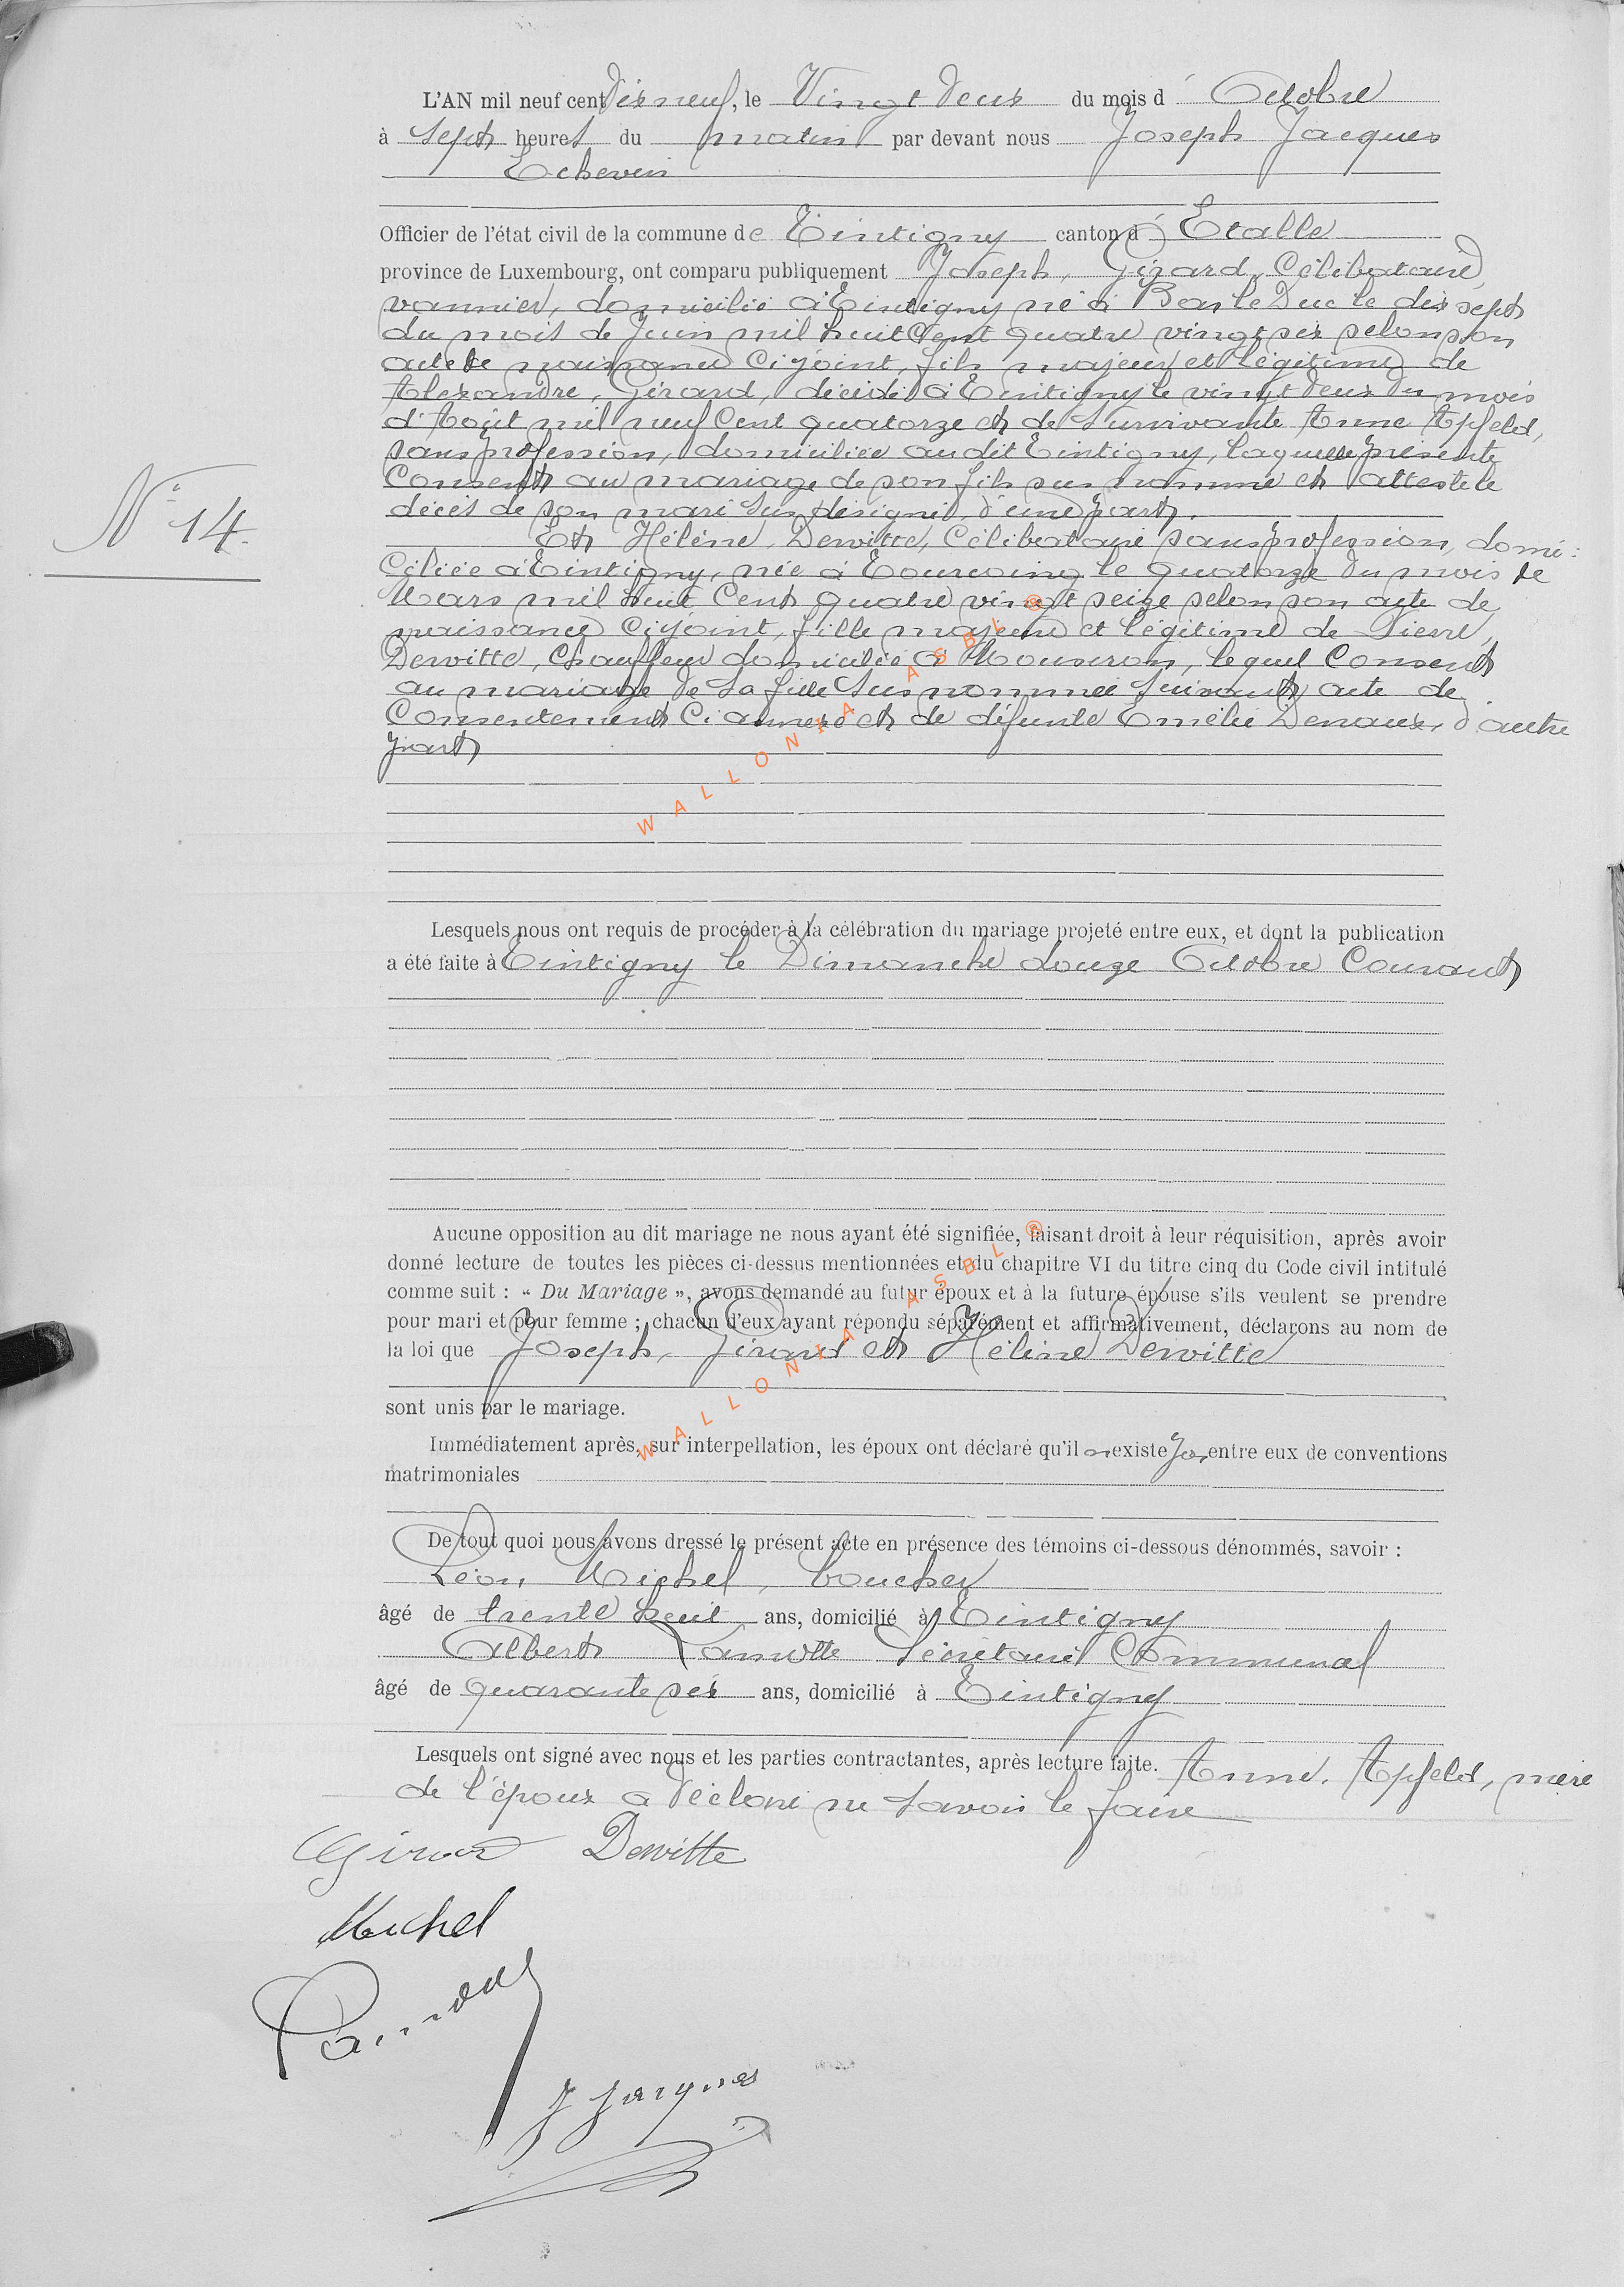 L'AN mil neuf cent dix neuf, le Vingt deux du mois d' Octobre
à sept heures du matin par devant nous Joseph Jacques
Echevin
Officier de l'état civil de la commune de Tintigny canton d' Etalle
province de Luxembourg, ont comparu publiquement Joseph, Girard, Célibataire,
vannier, domicilié à Tintigny né à Bar le Duc le dix sept
du mois de Juin mil huit Cent quatre vingt six selon son
acte de naissance Cijoint, fils majeur et légitime de
Alexandre, Girard, décédé à Tintigny le vingt deux du mois
d'Août mil neuf Cent quatorze et de Survivante Anne Apfeld,
sans profession, domiciliée au dit Tintigny, laquelle présente
Consent au mariage de son fils sus nommé et atteste le
décès de son mari sus désigné, d'une part.
N° 14.
Et Hélène, Dewitte, Célibataire sans profession, domi:
Ciliée à Tintigny, née à Tourcoing le quatorze du mois de
Mars mil huit Cent quatre vingt seize selon son acte de
naissance Cijoint, fille majeure et légitime de Pierre,
Dewitte, Chauffeur domicilié à Mouscron, lequel Consent
au mariage de sa fille sus nommée suivant acte de
Consentement Ci annexé et de défunte Emélie Denaux, d'autre
part
WALLONIA ASBL ®
Lesquels nous ont requis de procéder à la célébration du mariage projeté entre eux, et dont la publication
a été faite à Tintigny le Dimanche douze Octobre Courant
Aucune opposition au dit mariage ne nous ayant été signifiée, faisant droit à leur réquisition, après avoir
donné lecture de toutes les pièces ci-dessus mentionnées et du chapitre VI du titre cinq du Code civil intitulé
comme suit : « Du Mariage », avons demandé au futur époux et à la future épouse s'ils veulent se prendre
pour mari et pour femme ; chacun d'eux ayant répondu séparément et affirmativement, déclarons au nom de
la loi que Joseph, Girard et Hélène Dewitte
WALLONIA ASBL ®
sont unis par le mariage.
Immédiatement après, sur interpellation, les époux ont déclaré qu'il n'existe pas entre eux de conventions
matrimoniales
De tout quoi nous avons dressé le présent acte en présence des témoins ci-dessous dénommés, savoir :
Léon, Michel, boucher
âgé de trente huit ans, domicilié à Tintigny
Albert Lamotte Secrétaire Communal
âgé de quarante six ans, domicilié à Tintigny
Lesquels ont signé avec nous et les parties contractantes, après lecture faite. Anne. Apfeld, mère
de l'époux a déclaré ne savoir le faire
Girard Dewitte
Michel
J Jacques